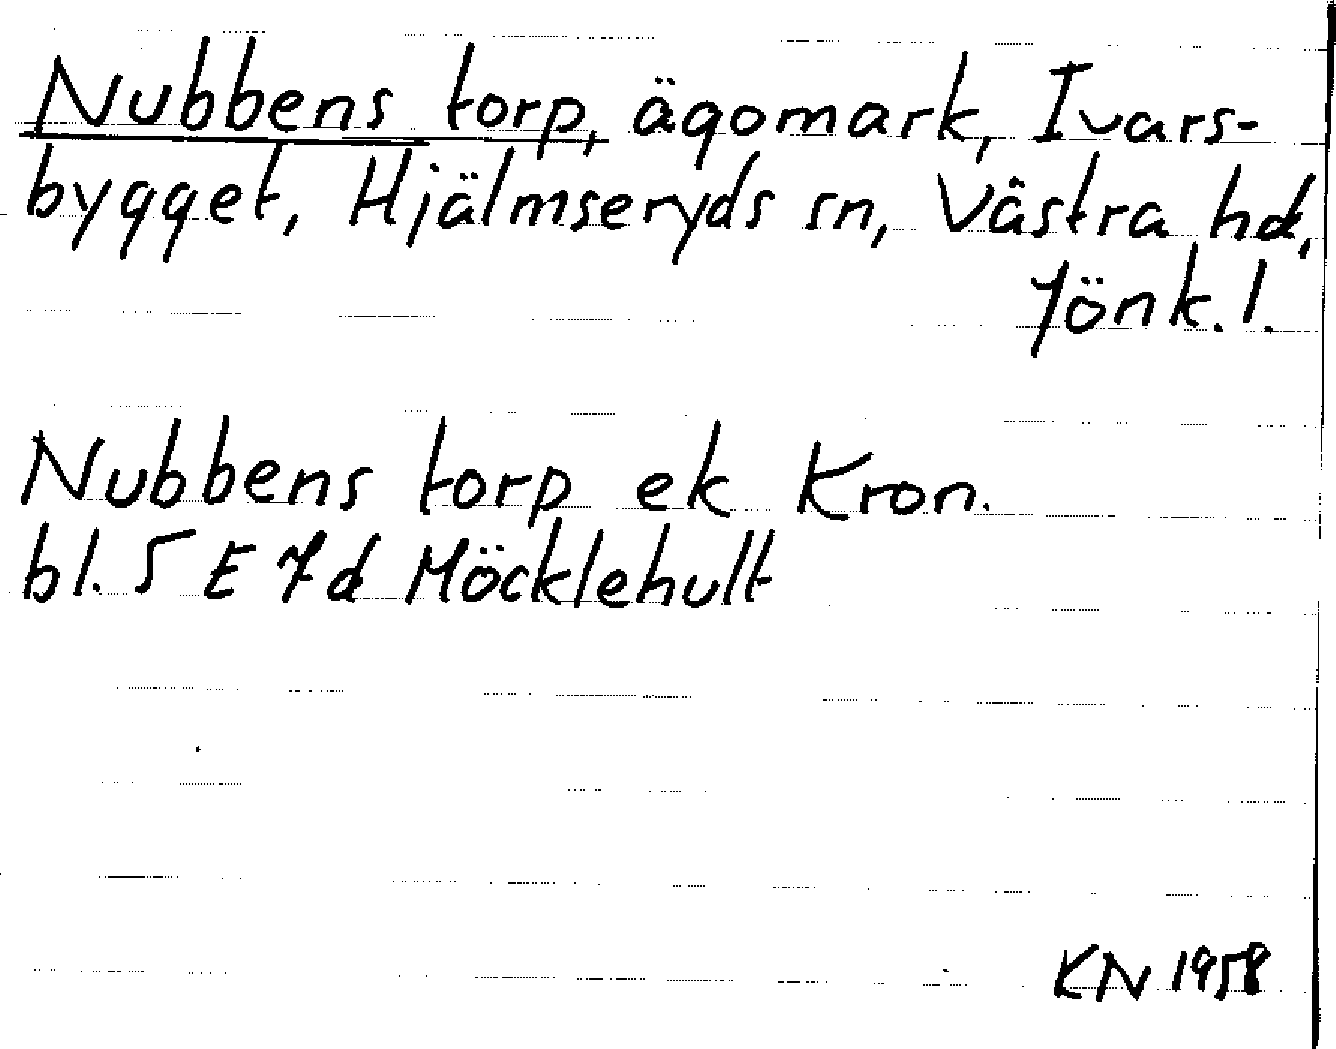 Nubbens torp, ägomark, Ivars-
bygget, Hjälmseryds sn, Västra hd,
Jönk. l.
Nubbens torp ek Kron.
bl. 5 E 7d Möcklehult
KN 1958